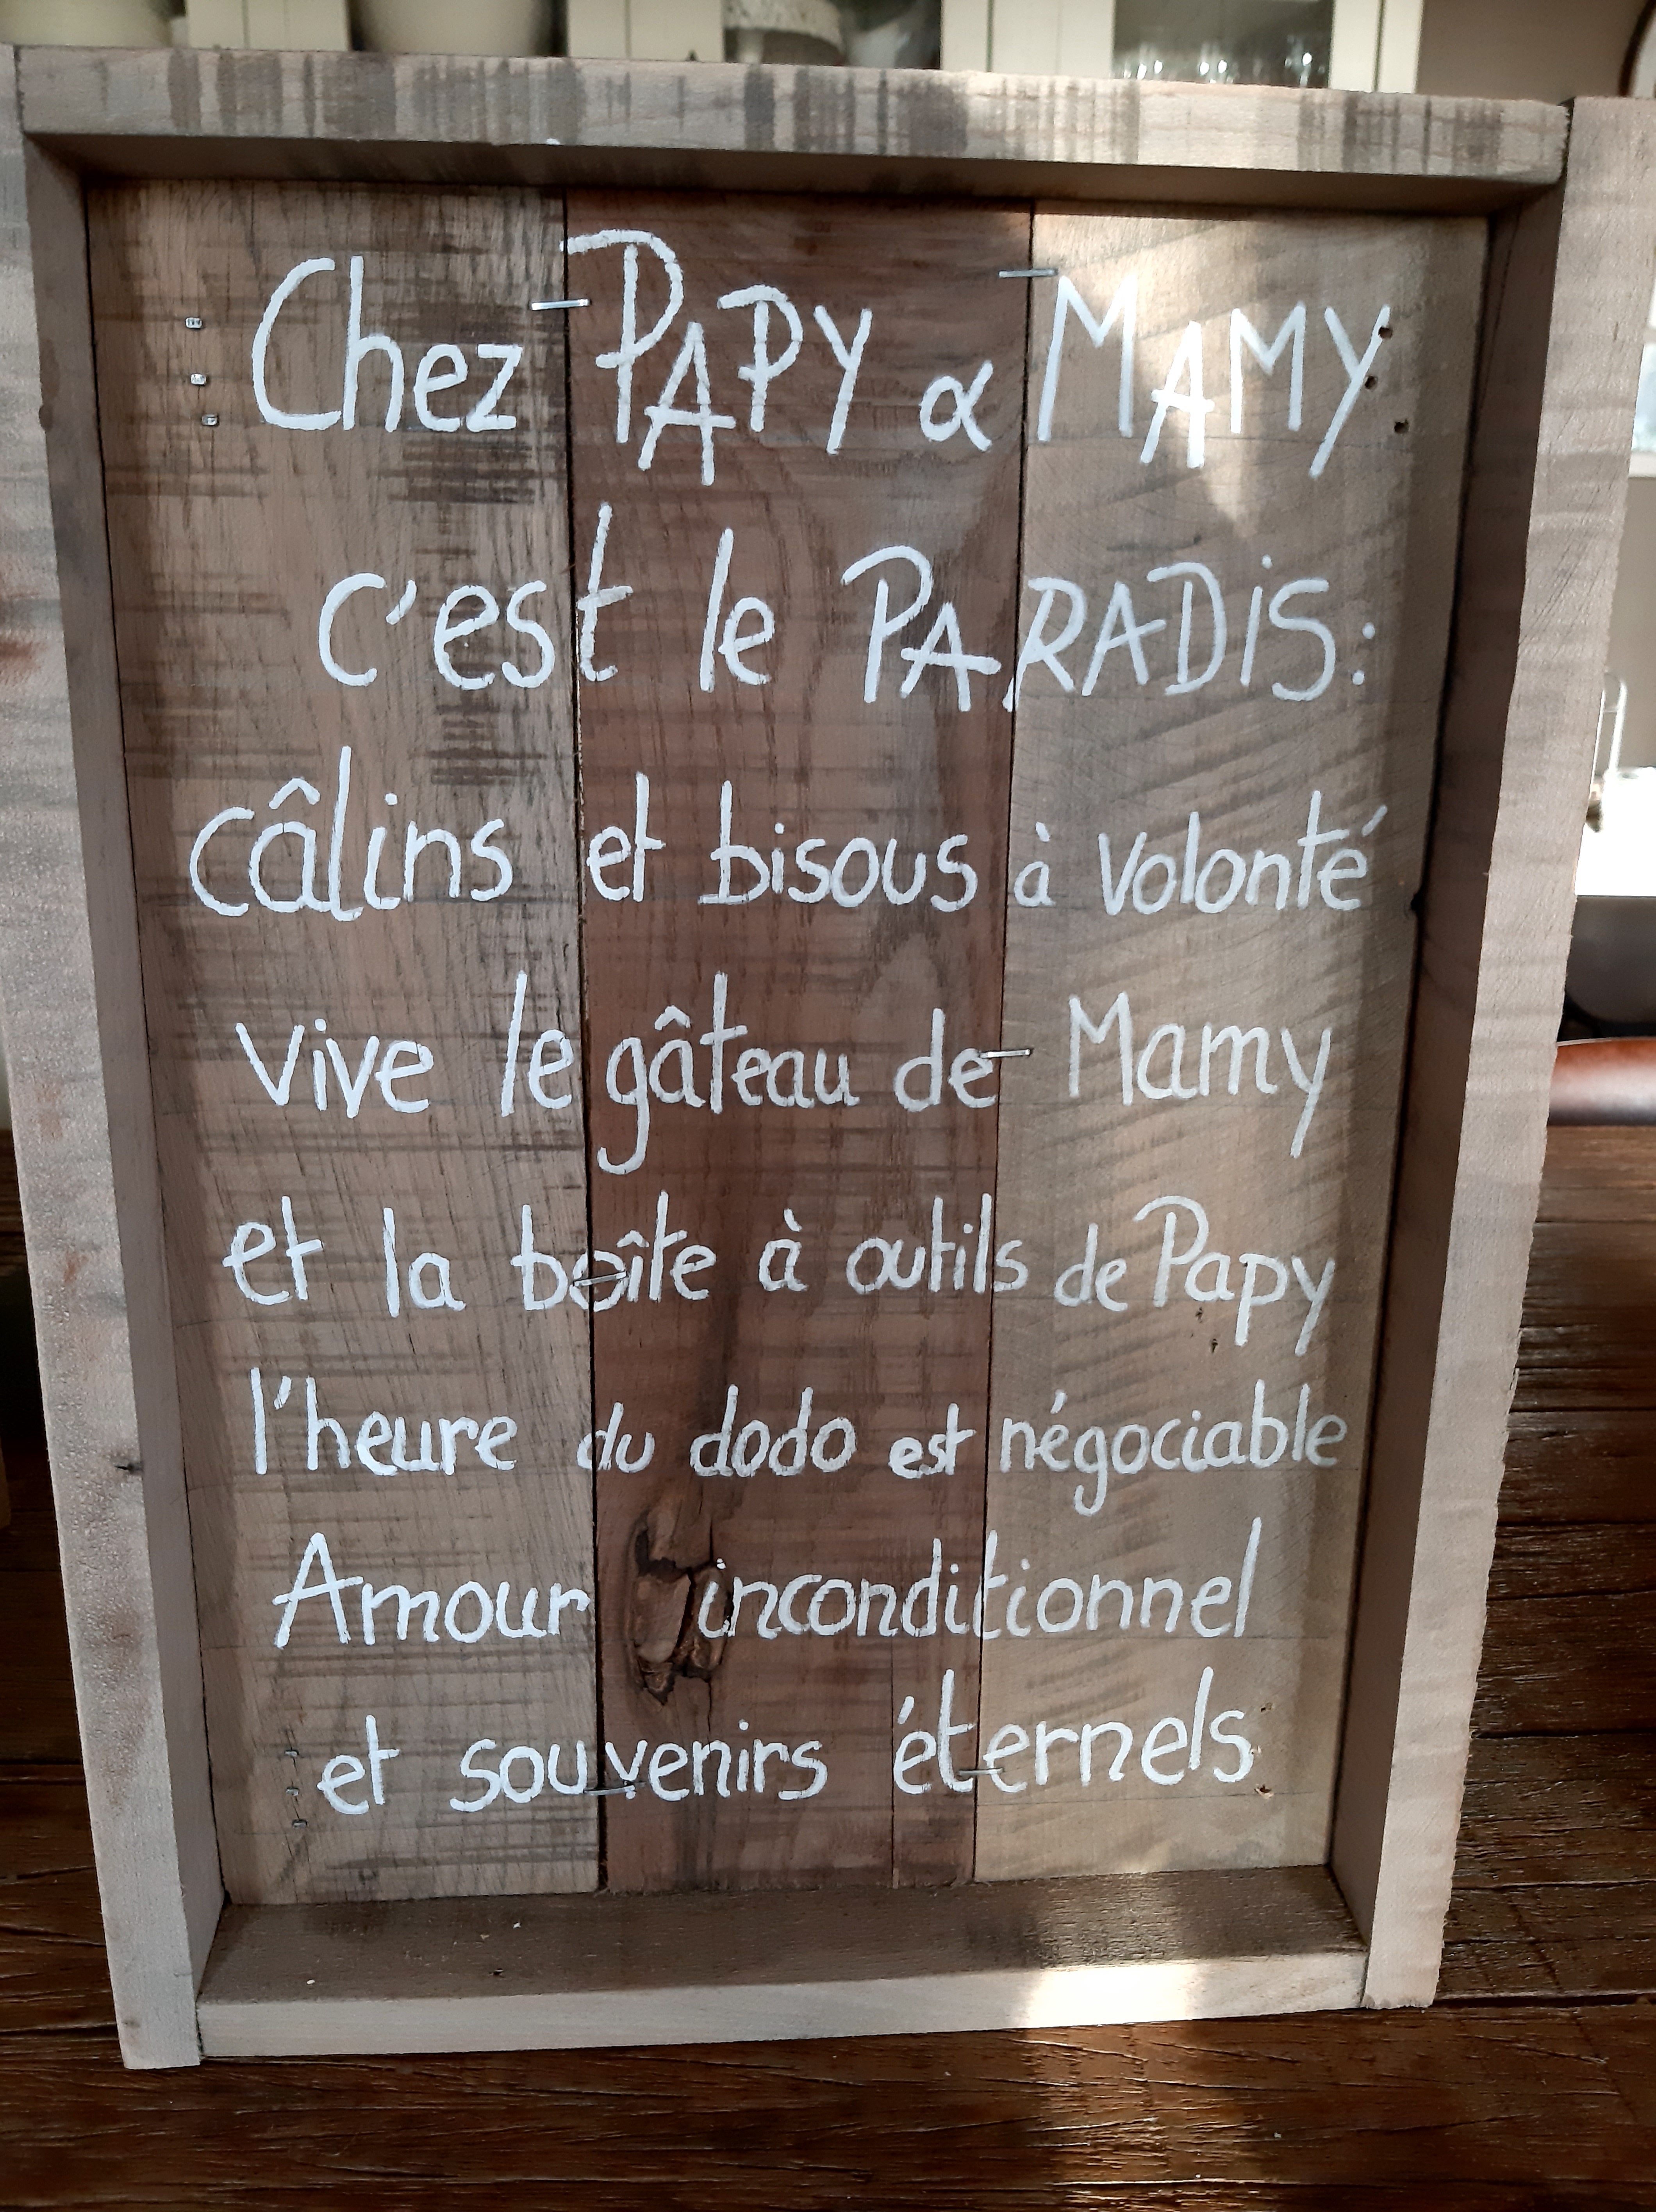 Chez PAPY & MAMY
c'est le PARADiS:
câlins et bisous à volonté
vive le gâteau de Mamy
et la boîte à outils de Papy
l'heure du dodo est négociable
Amour inconditionnel
et souvenirs éternels